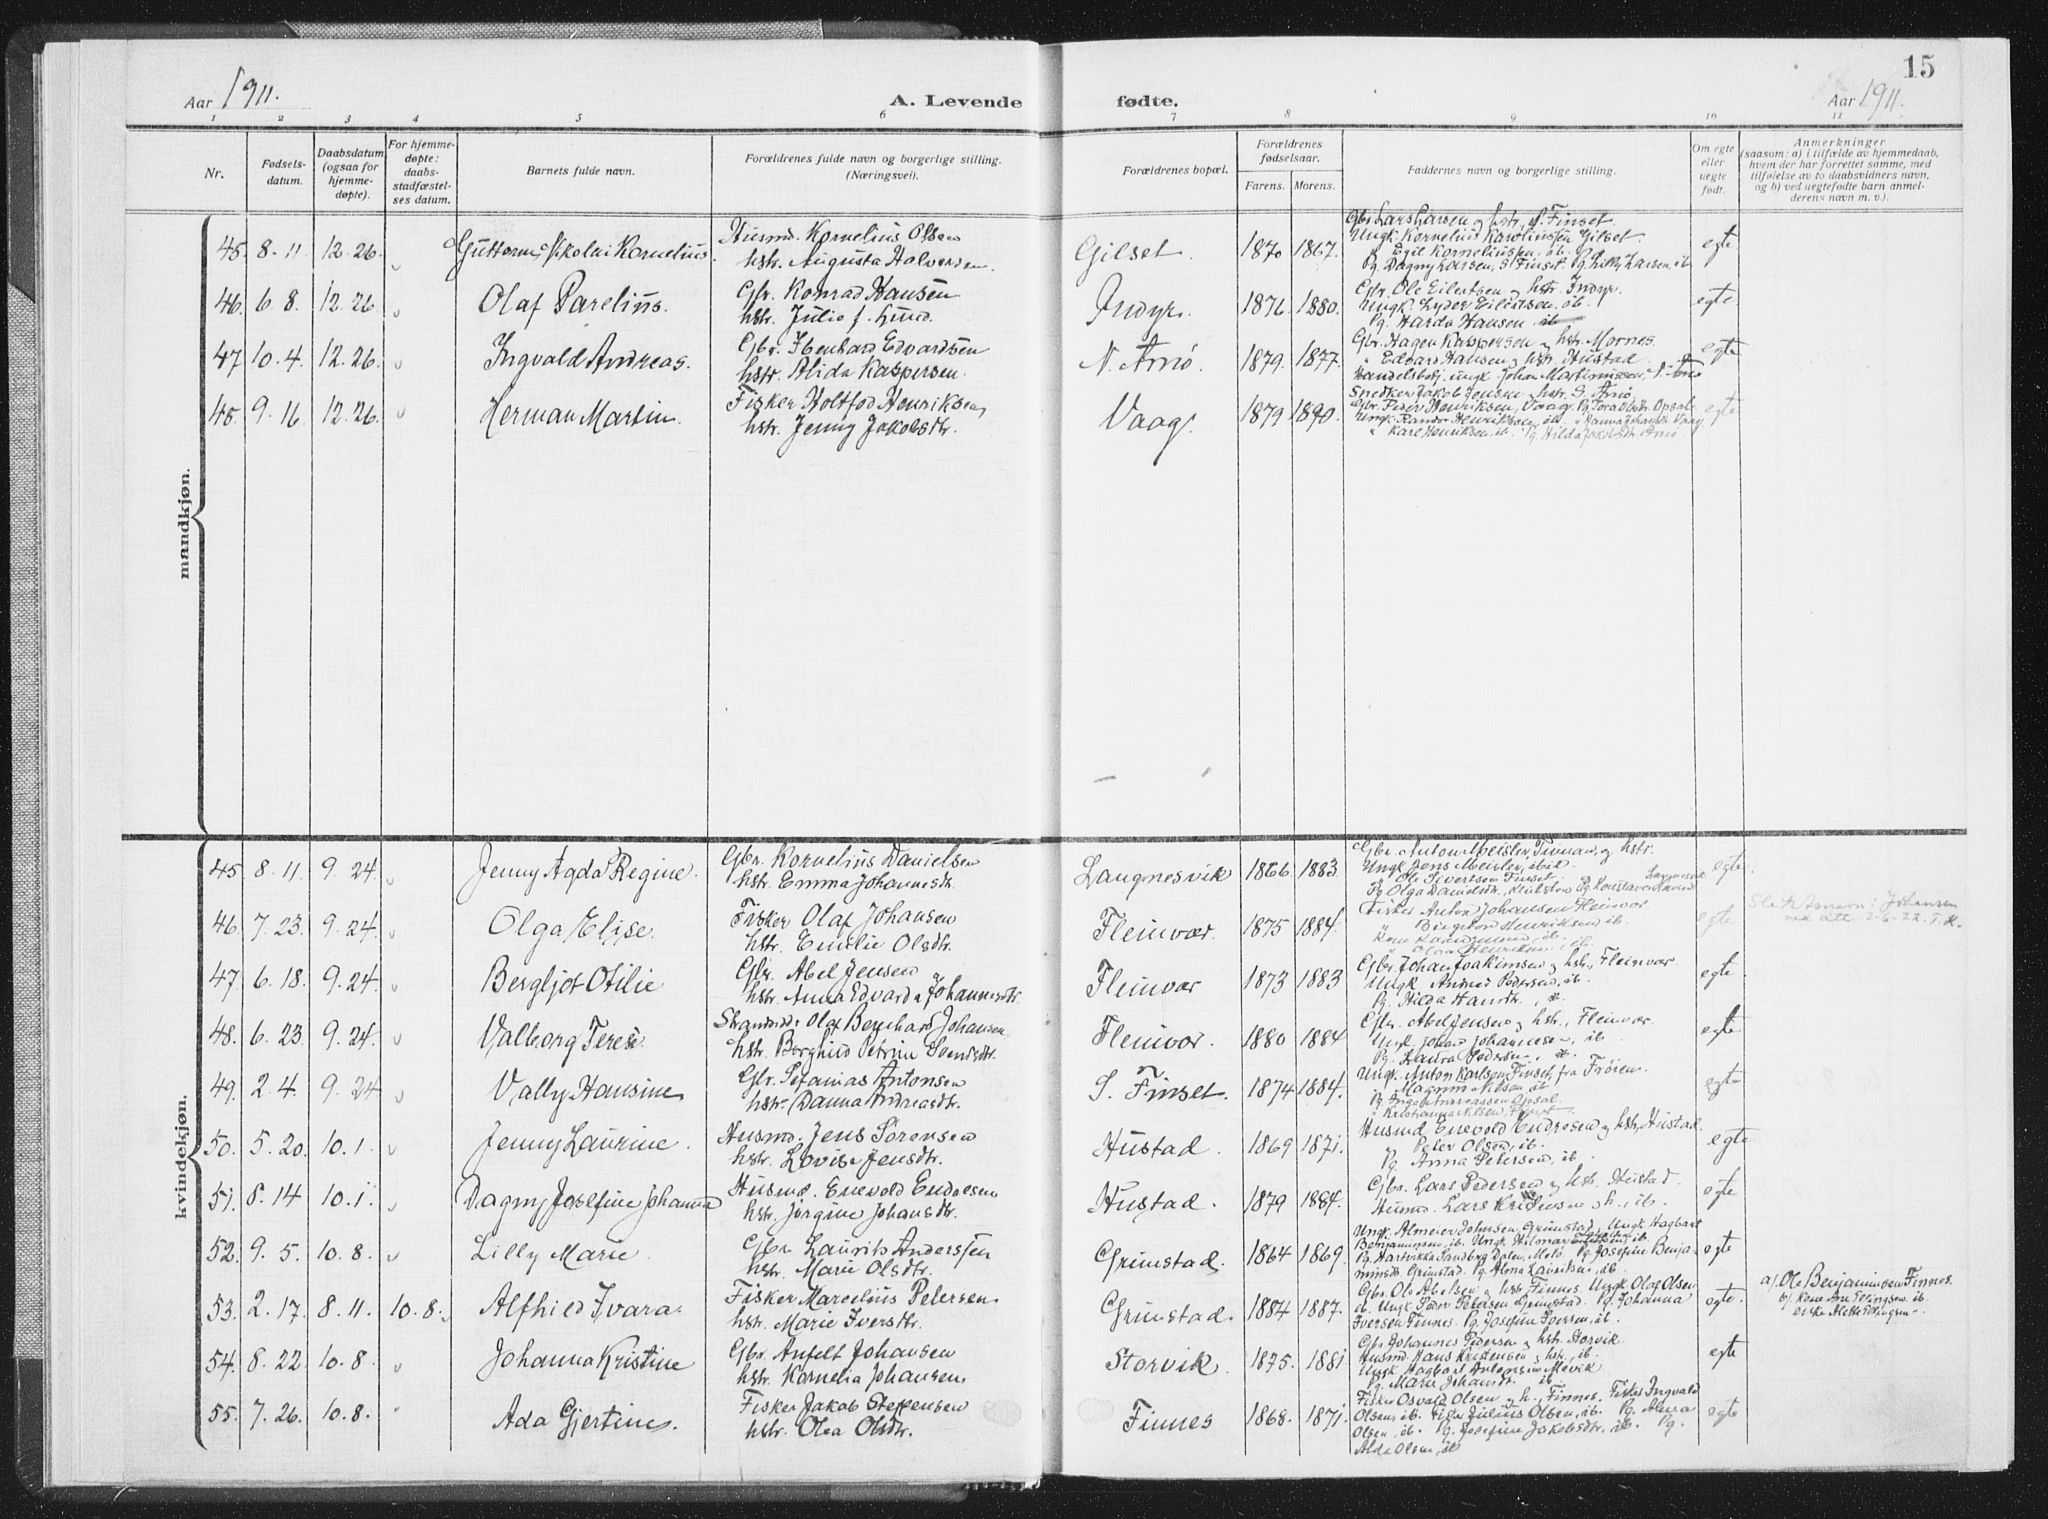 15
Aar 1911.
A. Levende fødte.
Aar 1911.
1 2 3 4 5 6 7 8 9 10 11
Nr.
Fødsels-
datum.
Daabsdatum
(ogsaa for
hjemme-
døpte).
For hjemme-
døpte:
daabs-
stadfæstel-
ses datum.
Barnets fulde navn.
Forældrenes fulde navn og borgerlige stilling.
(Næringsvei).
Forældrenes bopæl.
Forældrenes
fødselsaar.
Farens. Morens.
Faddernes navn og borgerlige stilling.
Om egte
eller
uegte
født.
Anmerkninger
(saasom: a) i tilfælde av hjemmedaab,
hvem der har forrettet samme, med
tilføielse av to daabsvidners navn,
og b) ved uegtefødte barn anmel-
derens navn m. v.).
mandkjøn.
45. 8. 11 12. 26. Guttorm Nikolai Kornelius.
Husmd. Kornelius Olsen
hstr. Augusta Halvorsen.
Gilset. 1870 1867.
Gbr. Lars Larsen og hstr. S. Finset
Ungk. Kornelius Karoliussen Gilset.
Egil Korneliussen, ib.
Pg. Dagny Larsen, S. Finset. Pg. Lilly Larsen, ib
egte
46. 6. 8. 12. 26 Olaf Parelius.
Gbr. Konrad Hansen
hstr. Julie f. Lund.
Indyr. 1876. 1880.
Gbr. Ole Eilertsen og hstr. Indyr.
Ungk. Lyder Eilertsen. ib.
Pg. Harda Hansen ib
egte
47 10. 4. 12. 26. Ingvald Andreas.
Gbr. Ibenhard Edvardsen
hstr. Alida Kaspersen.
N. Arnø. 1879. 1877.
Gbr. Hagen Kaspersen og hstr. Mornes.
" Edvard Hansen og hstr. Hustad
Handelsbetj. ungk. Johan Martinussen, N. Arnø
egte
48. 9. 16 12. 26. Herman Martin.
Fisker Holtfod Henriksen
hstr. Jenny Jakobsdtr.
Vaag. 1879 1890.
Snedker Jakob Jensen og hstr. S. Arnø.
Gbr. Peder Henriksen, Vaag. Pg. Tora Olsdtr. Opsal
" Karl Henriksen, ib. Pg. Hilda Jakobsdtr. Arnø
egte
kvindekjøn.
45 8. 11. 9. 24. Jenny Agda Regine.
Gbr. Kornelius Danielsen
hstr. Emma Johannsdtr.
Langnesvik 1866. 1883.
Gbr. Anton Meisler, og hstr.
Ungk. Jens Meisler, ibid.
" Ole Sivertsen Finset
Pg. Olga Danielsdtr.
egte
46. 7. 23. 9. 24. Olga Elise.
Fisker Olaf Johansen
hstr. Emilie Olsdtr.
Fleinvær. 1875 1884.
Fisker Anton Johansen Fleinvær
" Birgiton Henriksen ib.
egte
Slektsnavn: Johansen
47. 6. 18. 9. 24. Bergljot Otilie
Gbr. Abel Jensen
hstr. Anna Edvarda Johannesdtr.
Fleinvær 1873 1883
Gbr. Johan Joakimsen og hstr., Fleinvær.
Ungk Andreas Pedersen, ib.
Pg. Hilda Hansdtr., ib.
egte
48. 6. 23 9. 24. Valborg Terese.
Strandsidd. Olaf Bernhard Johansen
hstr. Borghild Petrine Svendsdtr.
Fleinvær. 1880 1884
Gbr. Abel Jensen og hstr., Fleinvær.
Ungk. Johan Johannesen, ib
Pg. Laura Pedersen, ib.
egte
49. 2. 4. 9. 24 Vally Hansine
Gbr. Stefanias Antonsen
hstr. Danna Andreasdtr.
S. Finset. 1874 1884.
Ungk. Anton Karlsen Finset, fra Frøien.
" Magnus Nilsen ib
Pg. Inga Andreassen Opsal
" Kristianna Nilsen, Finset
egte
50. 5. 20. 10. 1. Jenny Laurine.
Husmd. Jens Sørensen
hstr. Lovise Jensdtr.
Hustad. 1869 1871.
Husmd Enevold Endresen og hstr, Hustad.
" Peter Olsen, ib.
Pg. Anna Petersen, ib.
egte
51. 8. 14 10. 1. Dagny Josefine Johanna
Husmd. Enevold Endresen
hstr. Jørgine Johansdtr.
Hustad. 1879 1884.
Gbr. Lars Pedersen og hstr. Hustad.
Husmd. Lars Kristensen og h., ib.
egte
52. 9. 5. 10. 8. Lilly Marie
Gbr. Laurits Anderssen
hstr. Marie Olsdtr.
Grimstad. 1864 1869.
Ungk. Almeier Johnsen, Grimstad. Ungk. Hagbart
Benjaminsen, ib. Ungk. Hilmar ib.
Pg. Hartvikka Sandberg Dalen, Melø. Pg. Josefine Benja-
minsdtr. Grimstad. Pg. Alma Lauritsen, ib.
egte
53. 2. 17. 8. 11. 10. 8. Alfhild Ivara.
Fisker Marcelius Petersen
hstr. Marie Iversdtr.
Grimstad. 1884 1887.
Gbr. Ole Abelsen og hstr Finnes. Ungk. Olaf Olsen
ib. Ungk. Peder Petersen Grimstad. Pg. Johanna
Iversen Finnes. Pg. Josefine Iversen, ib.
egte.
a). Ole Benjaminsen Finnes.
b). Kone Ane Ellingsen ib.
enke Mette Ellingsen.
54. 8. 22 10. 8. Johanna Kristine
Gbr. Anfelt Johansen
hstr. Kornelia Johansen
Storvik. 1875. 1881
Gbr. Johannes Pedersen og hstr. Storvik.
Husmd. Hans Kristensen og hstr., ib.
Ungk Hagbart Antonsen Møvik
Pg. Marie Johansdtr. ib.
egte
55. 7. 26. 10. 8. Ada Gjertine.
Fisker Jakob Steffensen
hstr. Olea Olsdtr.
Finnes 1868. 1871.
Fisker Osvald Olsen og h., Finnes. Fisker Ingvald
Olsen, ib. Fisker Julius Olsen, ib. Pg. Anna
Olsen, ib. Pg. Josefine Jakobsdtr., ib. Pg.
Alda Olsen, ib
egte